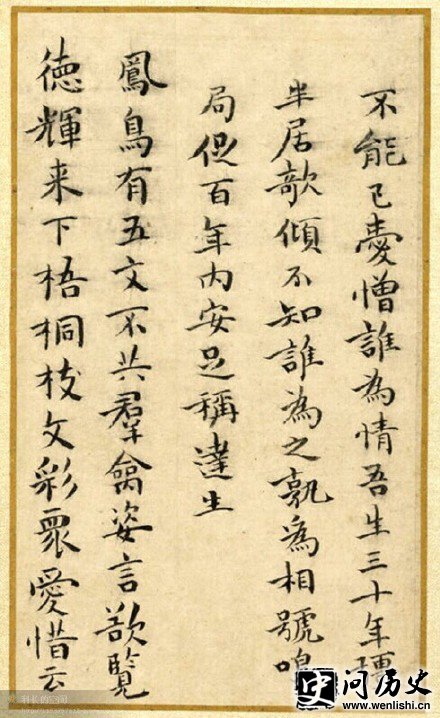 不能已愛憎誰為情吾生三十年彊
半居欹傾不知誰為之孰為相號鳴
局促百年內安足稱達生
鳳鳥有五文不共羣禽姿言欲覽
德輝来下梧桐枝文彩眾愛惜云
问历史
www.wenlishi.cn